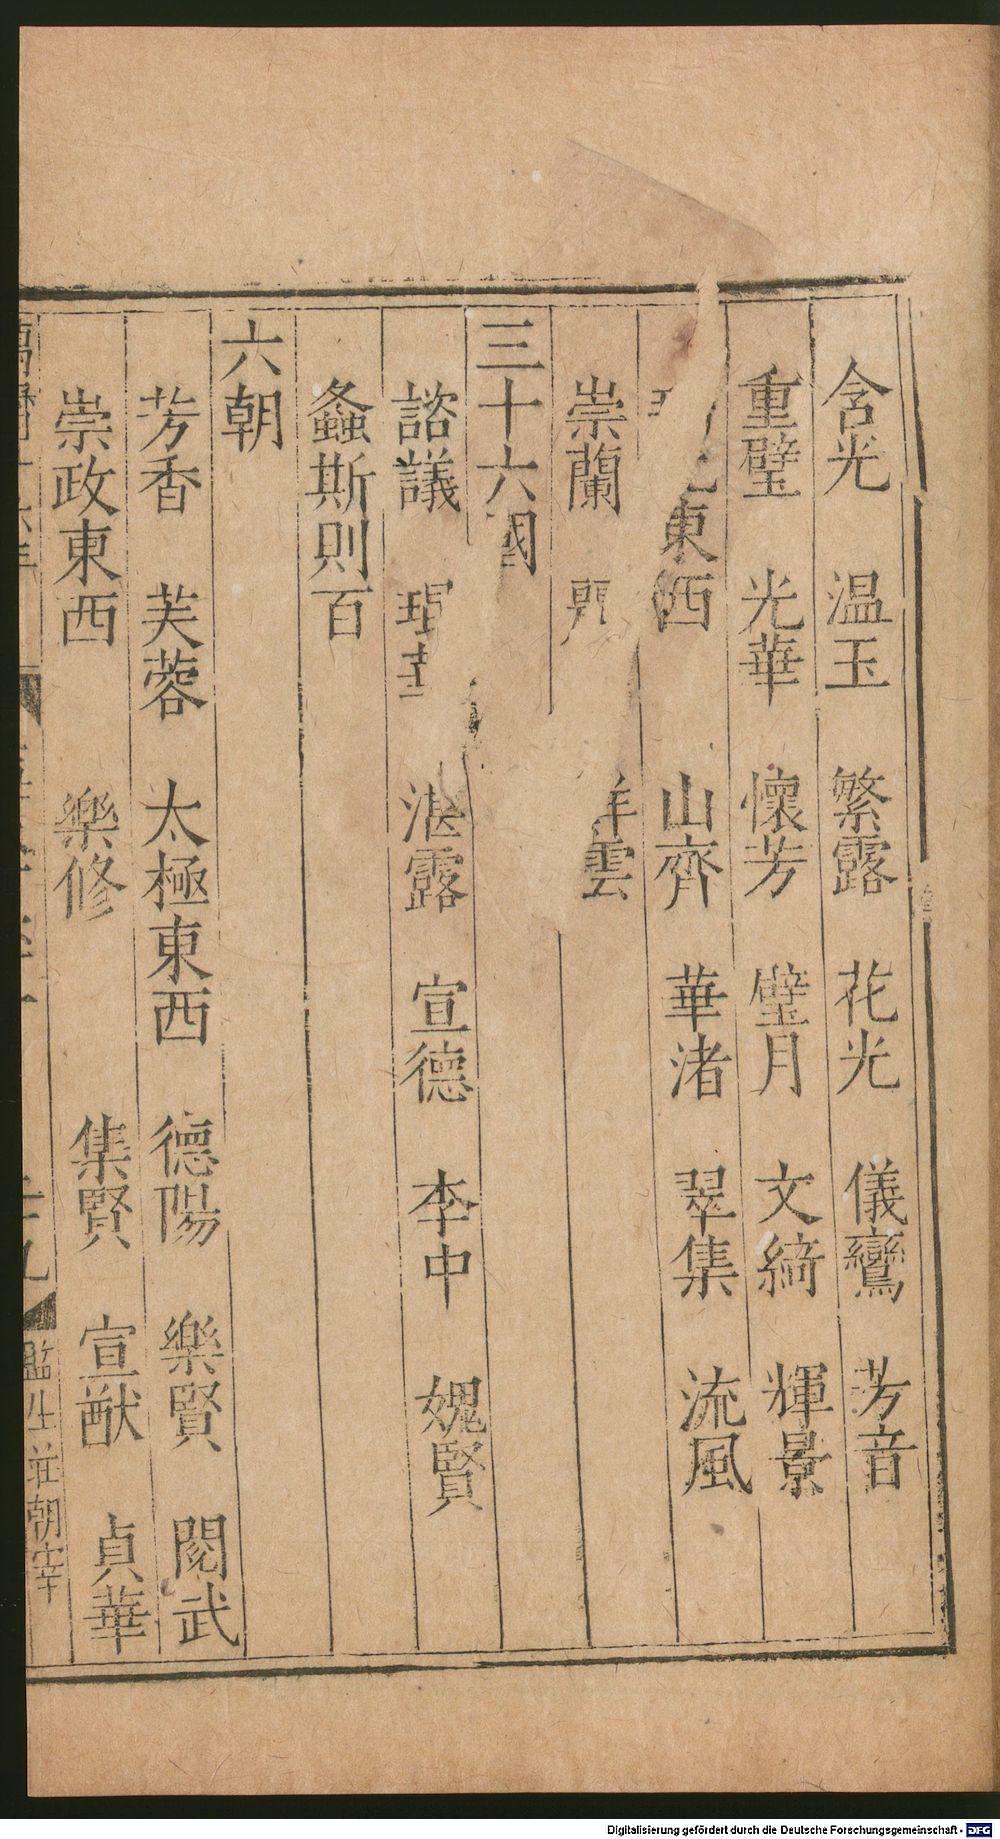 含光　温玉　繁露　花光　儀鸞　芳音
重璧　光華　懷芳　璧月　文綺　輝景
東西　山齊　華渚　翠集　流風
崇蘭　雲
三十六國
諮議　湛露　宣德　李中　媿賢
螽斯則百
六朝
芳香　芙蓉　太極東西　德陽　樂賢　閱武
崇政東西　樂修　集賢　宣猷　貞華
監生莊朝宰
Digitalisierung gefördert durch die Deutsche Forschungsgemeinschaft - DFG